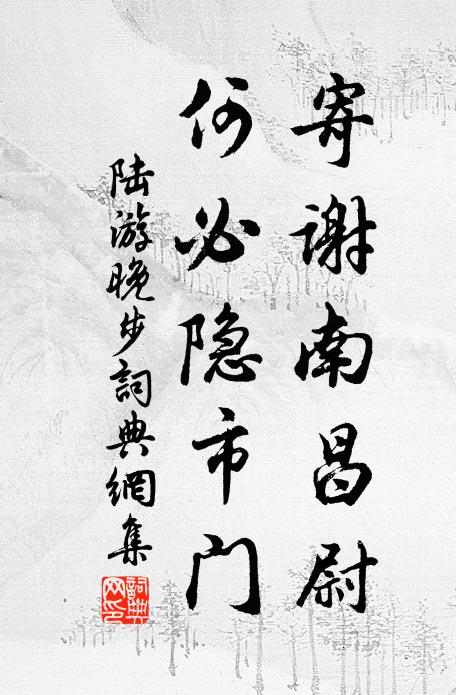 寄谢南昌尉
何必隐市门
陆游晚步詞典網集
詞典网印